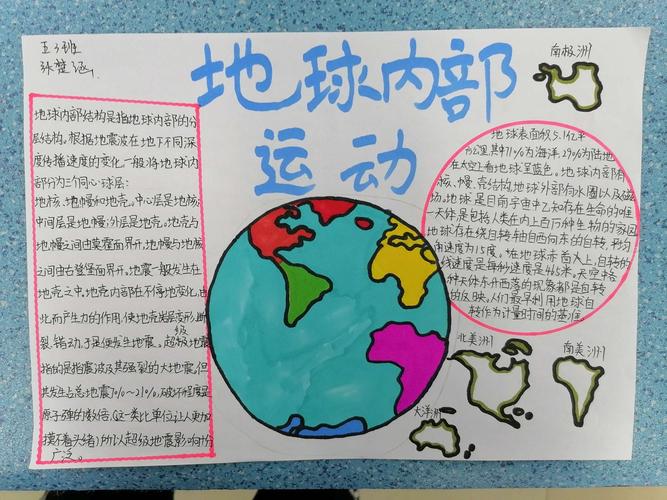 五3班
张楚涵
地球内部
运动
地球内部结构是指地球内部的分
层结构。根据地震波在地下不同深
度传播速度的变化一般将地球内
部分为三个同心球层:
地核、地幔和地壳。中心层是地核;
中间层是地幔;外层是地壳。地壳与
地幔之间由莫霍面界开,地幔与地核
之间由古登堡面界开。地震一般发生在
地壳之中。地壳内部在不停地变化,由
此而产生力的作用,使地壳岩层变形、断
裂、错动,于是便发生地震。超级地震
指的是指震波及其强烈的大地震。但
其发生占总地震7%~21%,破坏程度是
原子弹的数倍,(这一类比单位让人更加
摸不着头绪)所以超级地震影响十分
广泛。
地球表面积5.1亿平
方公里,其中71%为海洋,29%为陆地
在太空上看地球呈蓝色。地球内部有
核、幔、壳结构,地球外部有水圈以及磁
场。地球是目前宇宙中已知存在生命的唯一
天体,是包括人类在内上百万种生物的家园
地球存在绕自转轴自西向东的自转,平均
角速度为15度。在地球赤道上,自转的
线速度是每秒速度是465米。天空中各
种天体东升西落的现象都是自转
的反映。人们最早利用地球自
转作为计量时间的基准。
南极洲
北美洲
南美洲
大洋洲